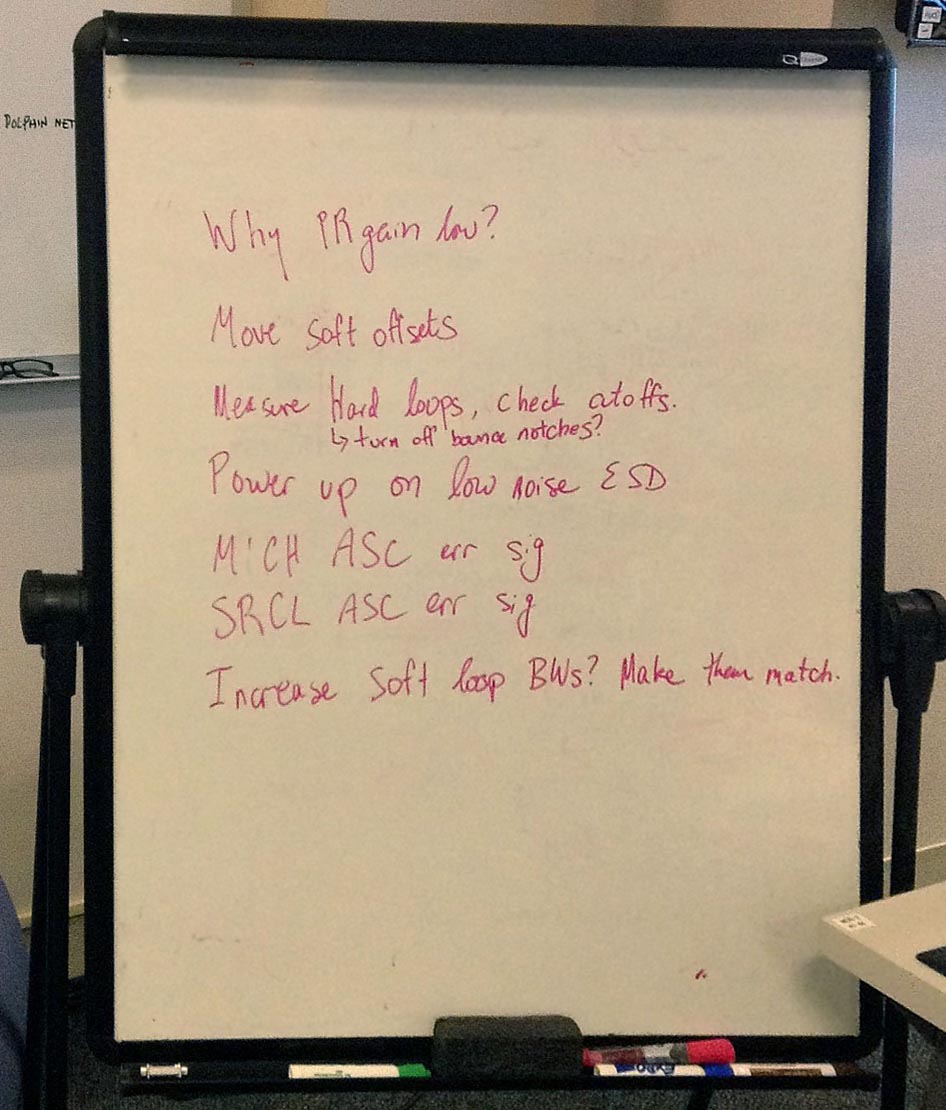 DOLPHIN NET
Why PR gain low?
Move Soft offsets
Measure Hard loops, check cutoffs.
↳ turn off bounce notches?
Power up on low noise ESD
MICH ASC err sig
SRCL ASC err sig
Increase Soft loop BWs? Make them match.
EXPO